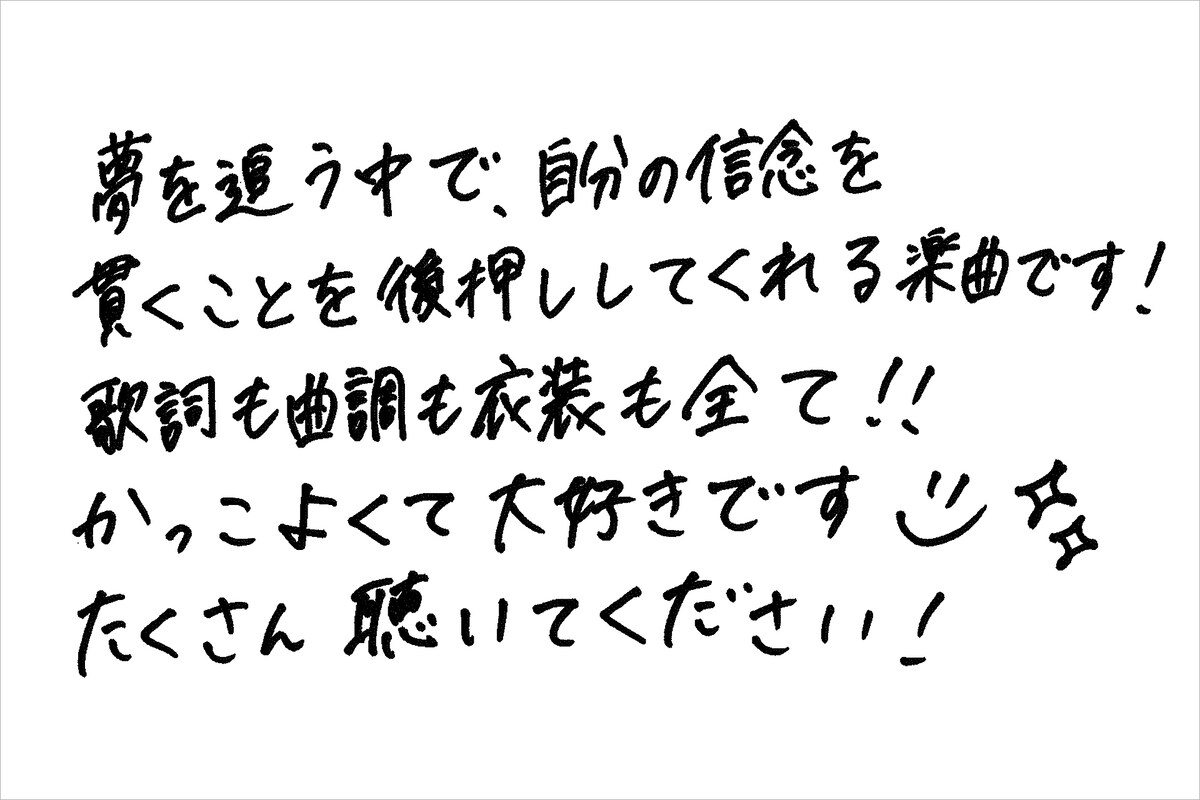 夢を追う中で、自分の信念を
貫くことを後押ししてくれる楽曲です!
歌詞も曲調も衣装も全て!!
かっこよくて大好きです
たくさん聴いてください!